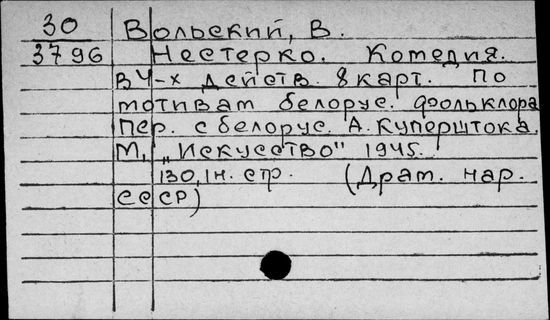 30 Вольский, В.
3796 Нестерко. Комедия.
в 4-х действ. 8 карт. По
мотивам белорус. фольклора
Пер. с белорус. А. Куперштока.
М., „Искусство" 1945.
130, 1н. стр. (Драм. нар.
СССР)